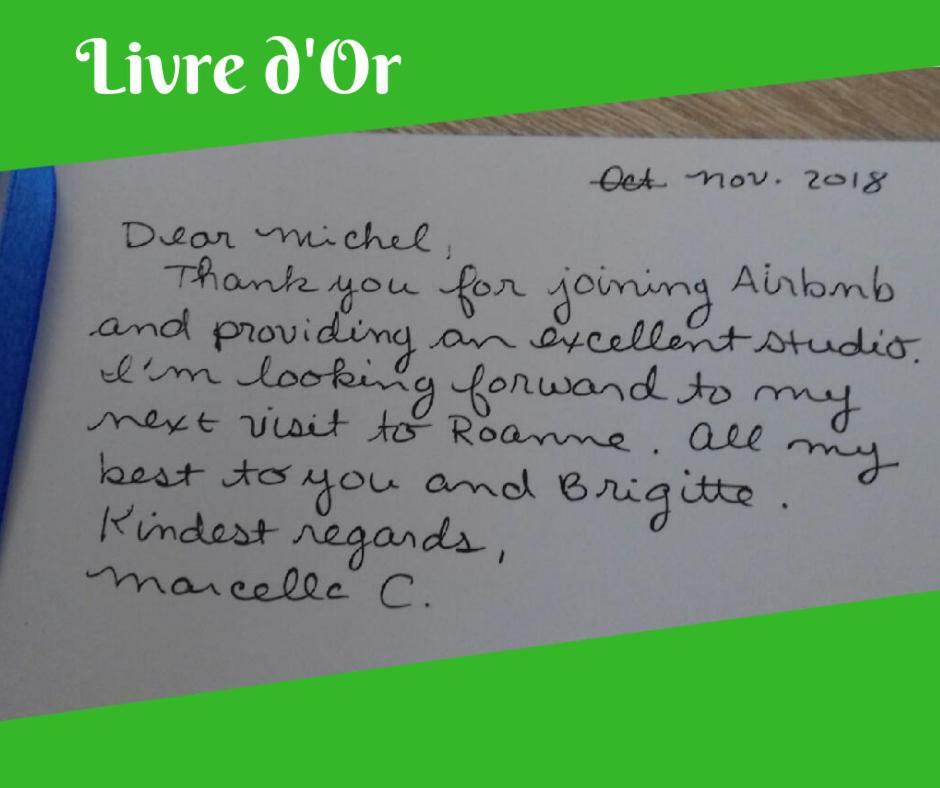 Livre d'Or
Oct nov. 2018
Dear Michel,
Thank you for joining Airbnb
and providing an excellent studio.
I'm looking forward to my
next visit to Roanne. All my
best to you and Brigitte.
Kindest regards,
Marcelle C.